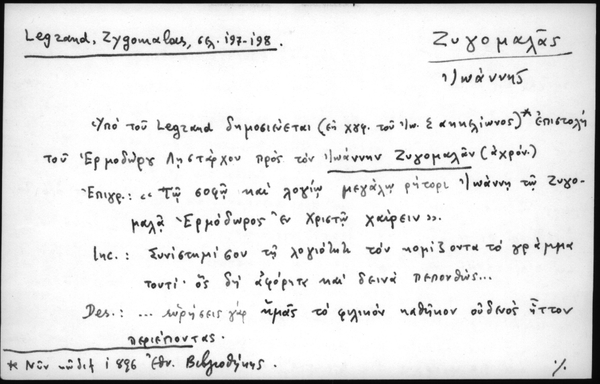 Legrand, Zygomalas, σελ. 197-198.
Ζυγομαλᾶς
Ἰωάννης
Ὑπὸ τοῦ Legrand δημοσιεύεται (ἐκ χφ. τοῦ Ἰω. Σακκελίωνος)* ἐπιστολὴ
τοῦ Ἑρμοδώρου Ληστάρχου πρὸς τὸν Ἰωάννην Ζυγομαλᾶν (ἀχρόν.)
Ἐπιγρ.: «Τῷ σοφῷ καὶ λογίῳ μεγάλῳ ῥήτορι Ἰωάννῃ τῷ Ζυγο-
μαλᾷ Ἑρμόδωρος ἐν Χριστῷ χαίρειν».
Inc.: Συνίστημί σου τῇ λογιότητι τὸν κομίζοντα τὸ γράμμα
τουτί· ὃς δὴ ἀφόρητα καὶ δεινὰ πεπονθὼς...
Des.: ... εὑρήσεις γὰρ ἡμᾶς τὸ φιλικὸν καθῆκον οὐδενὸς ἧττον
περιέποντας.
* Νῦν κῶδιξ 1896 Ἐθν. Βιβλιοθήκης.
./.